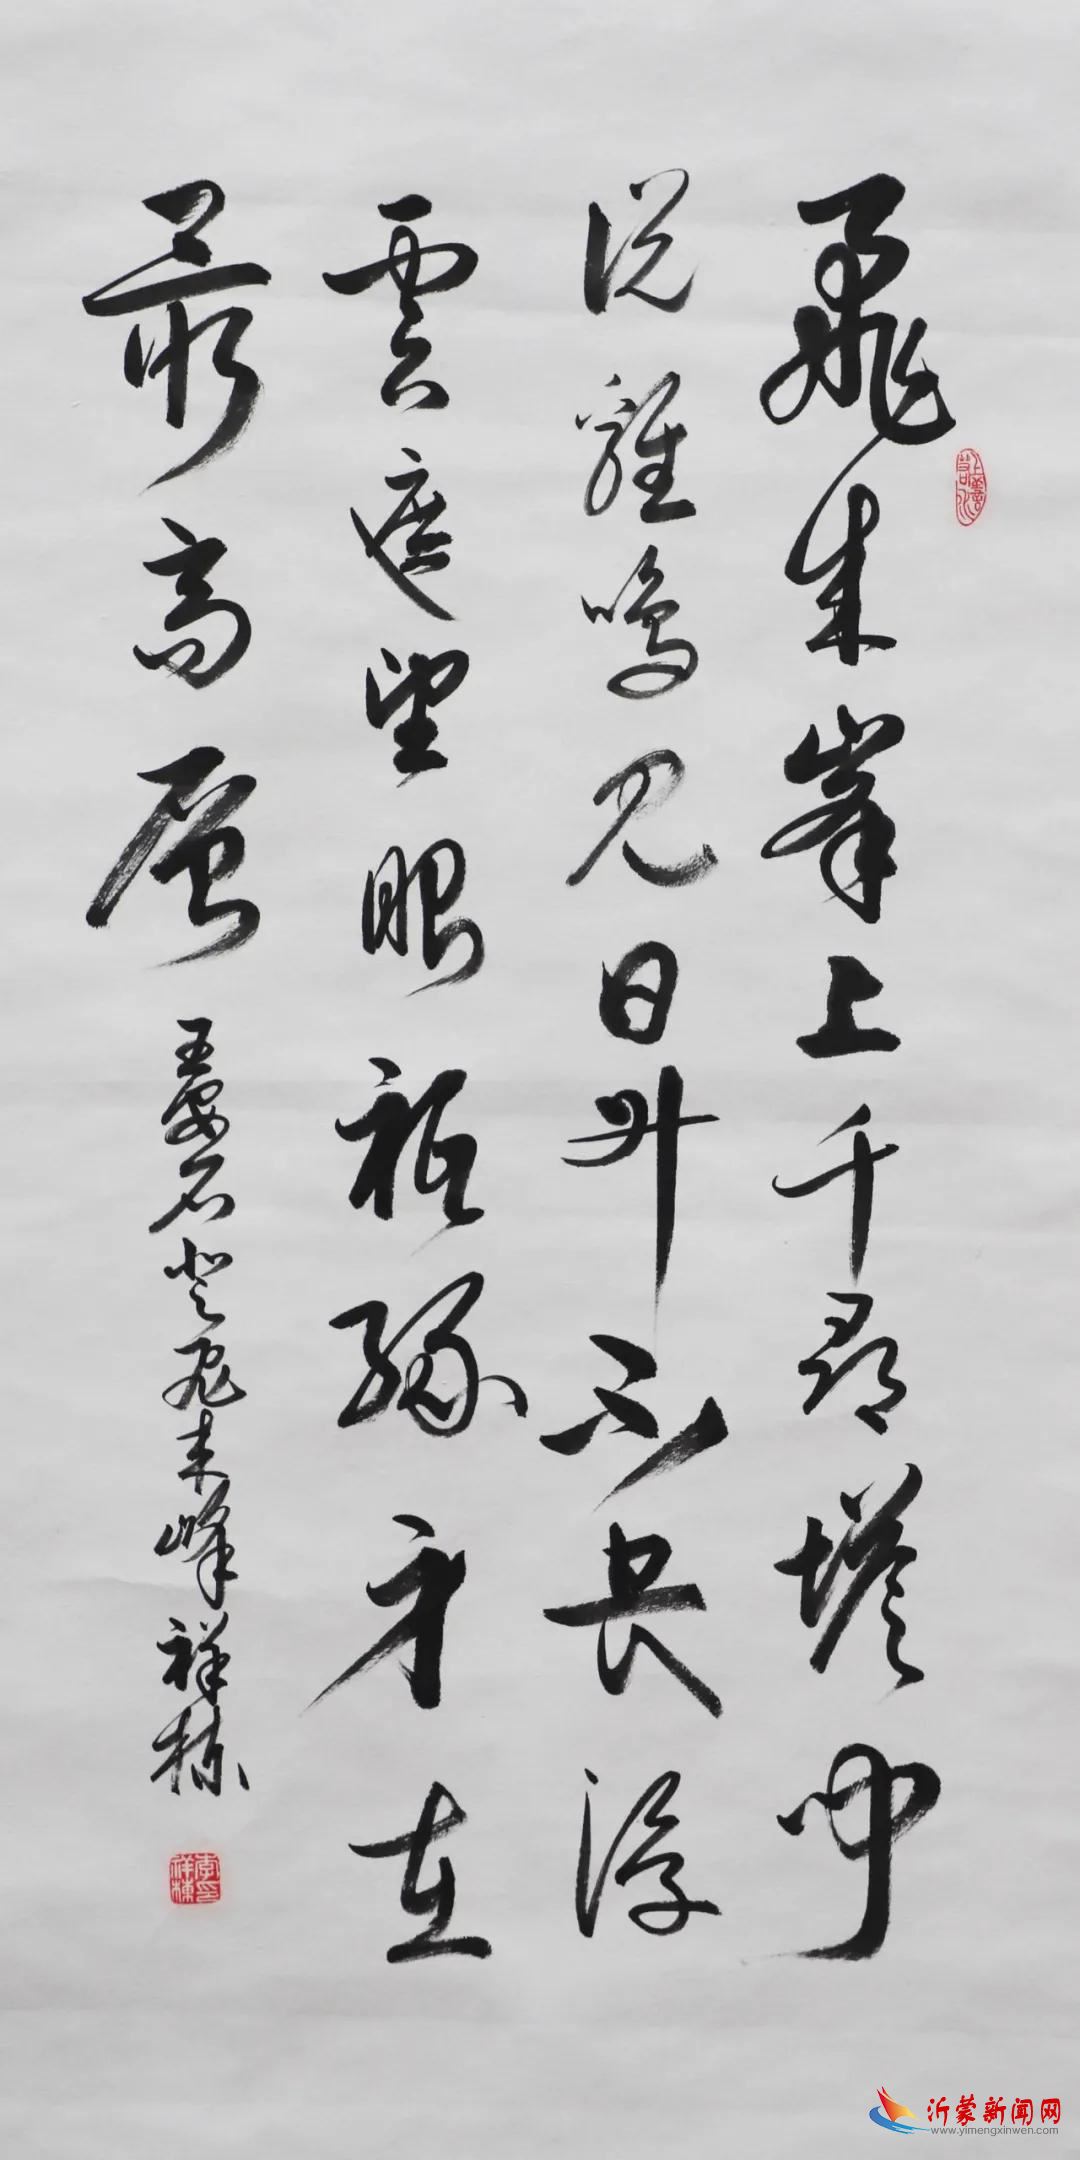 飛来峯上千尋塔聞
说雞鳴見日升不畏浮
雲遮望眼祗緣身在
最高層
王安石登飛来峰祥棟
上善若水
李印祥棟
沂蒙新闻网
www.yimengxinwen.com